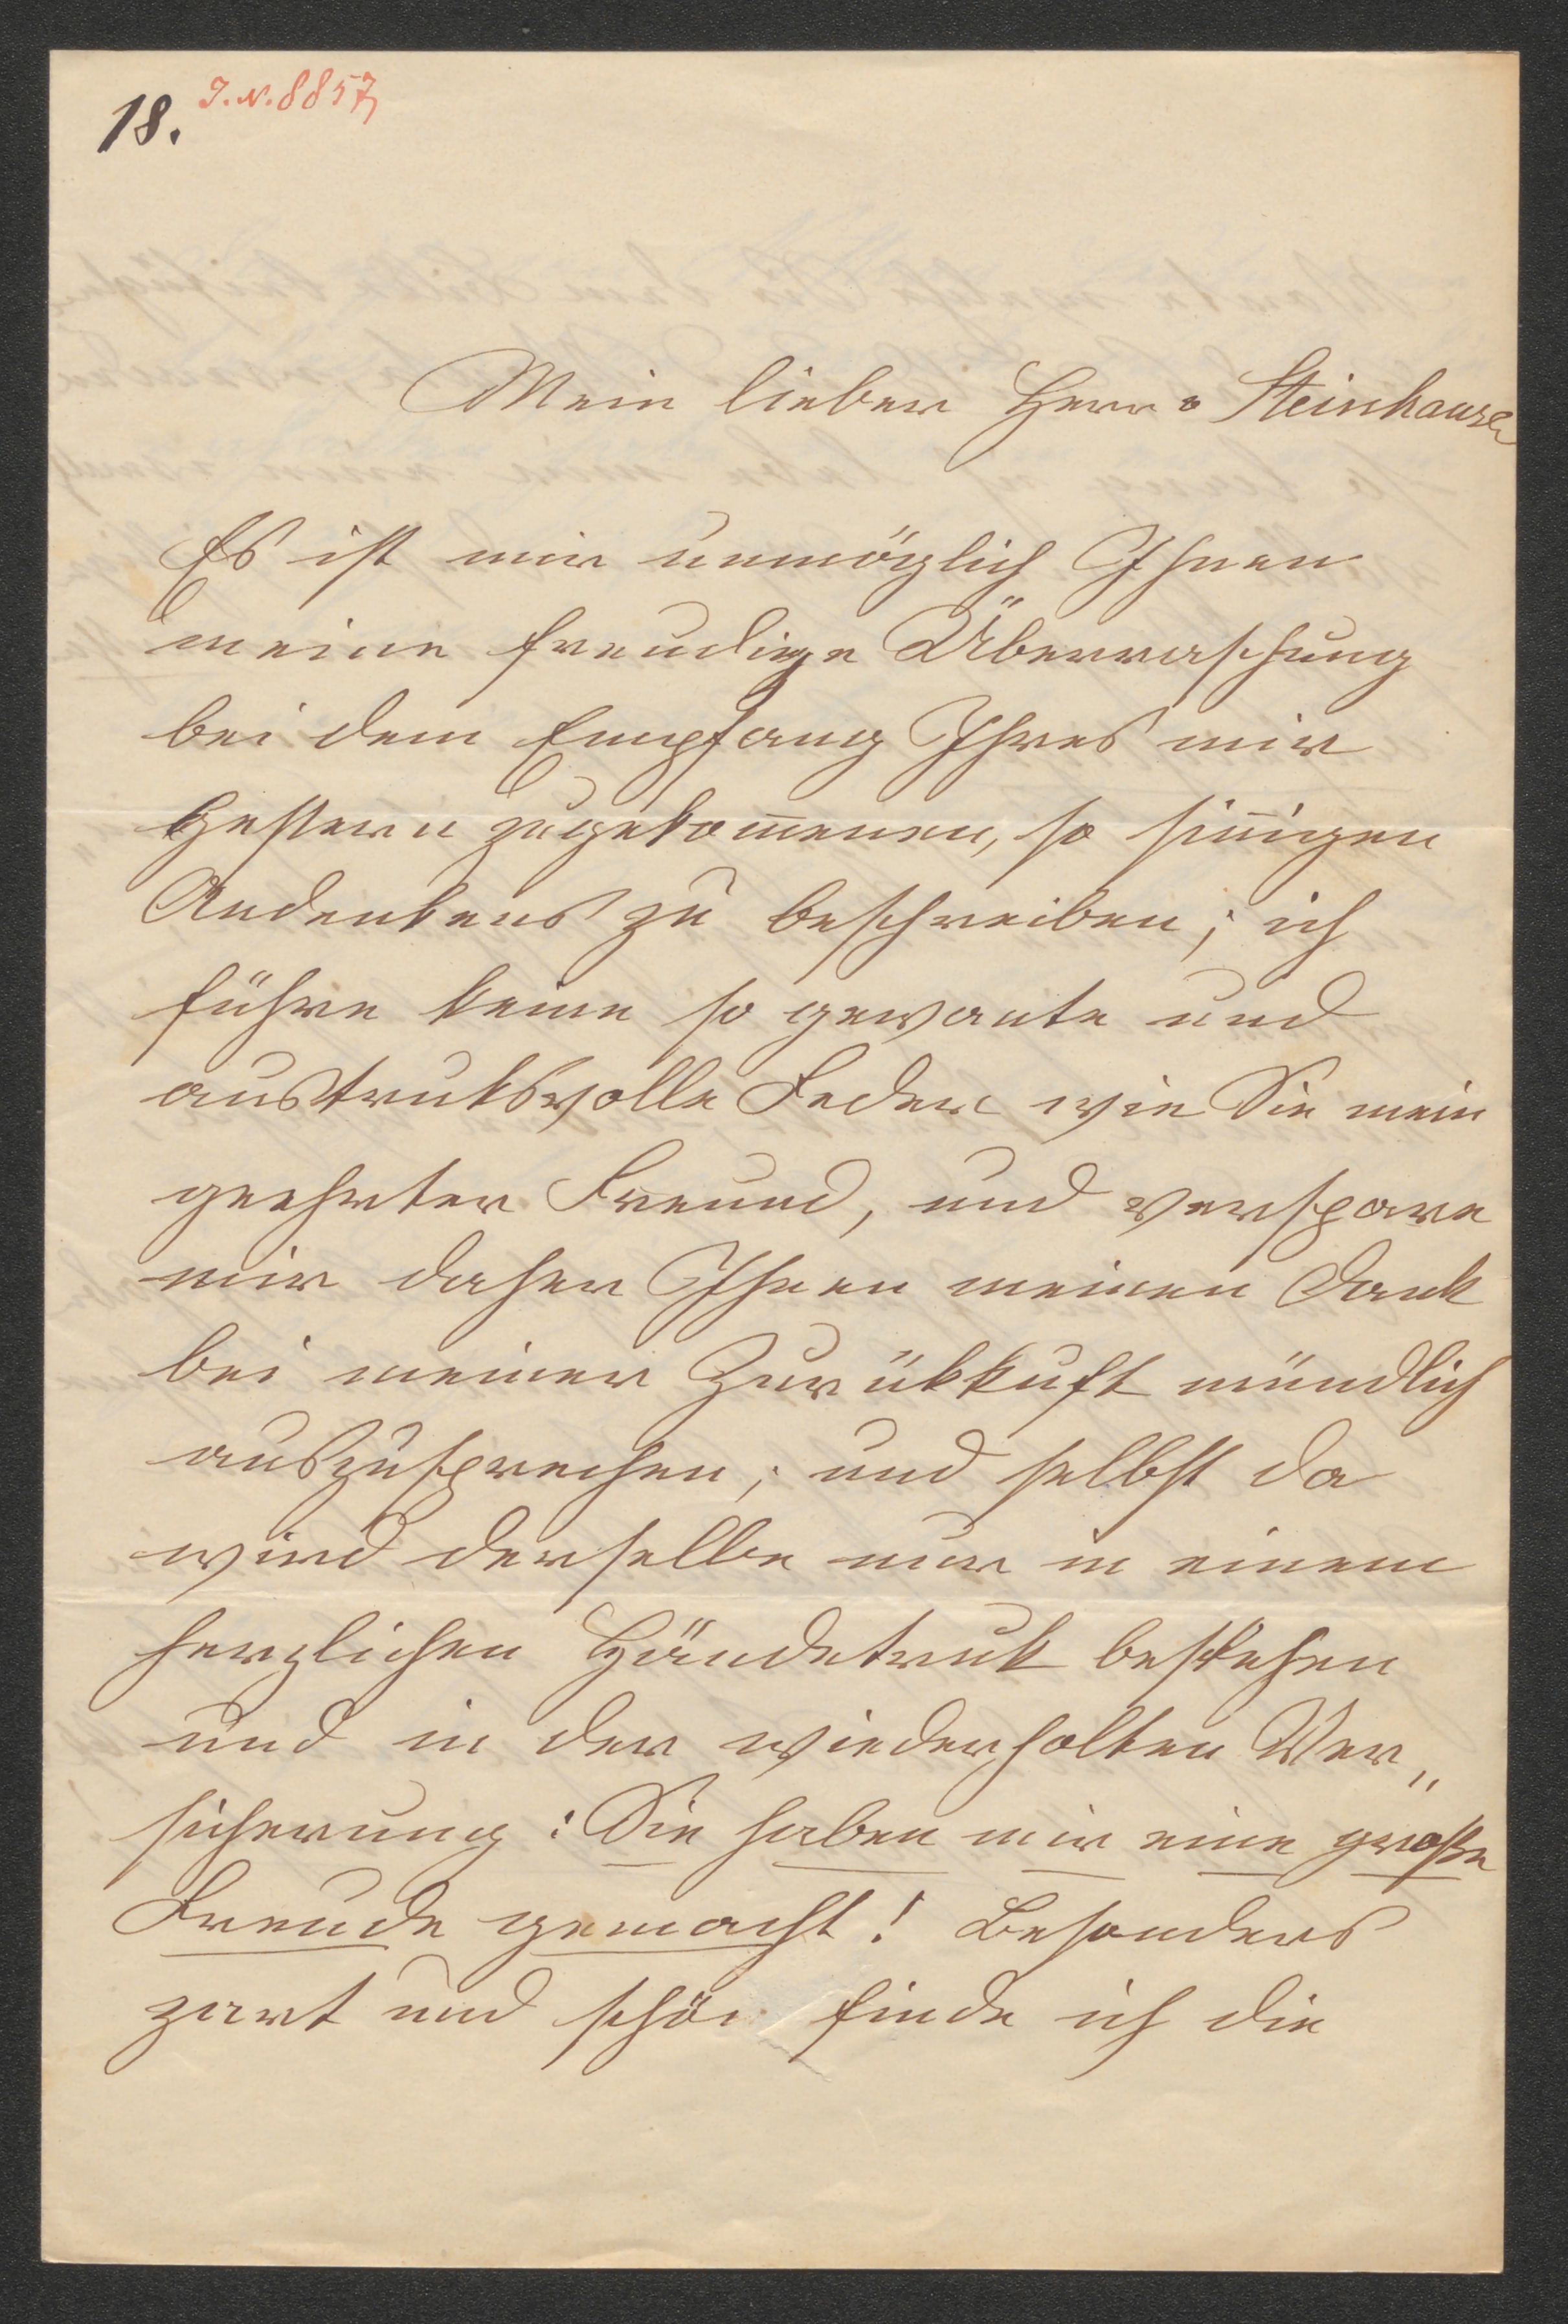 18. J.N. 8857
Mein lieber Herr v Steinhauser
Es ist mir unmöglich Ihnen
meine freudige Überraschung
bei dem Empfang Ihres mir
gestern zugekom̅enen, so sin̅igen
Andenkens zu beschreiben; ich
führe keine so gewante und
austruksvolle Feder wie Sie mein
geehrter Freund, und verspare
mir daher Ihnen meinen Dank
bei meiner Zurükkuft mündlich
auszusprechen; und selbst da
wird derselbe nur in einem
herzlichen Händetruk bestehen
und in der wiederholten Ver„
sicherung: Sie haben mir eine große
Freude gemacht! Besonders
zart und schön finde ich die